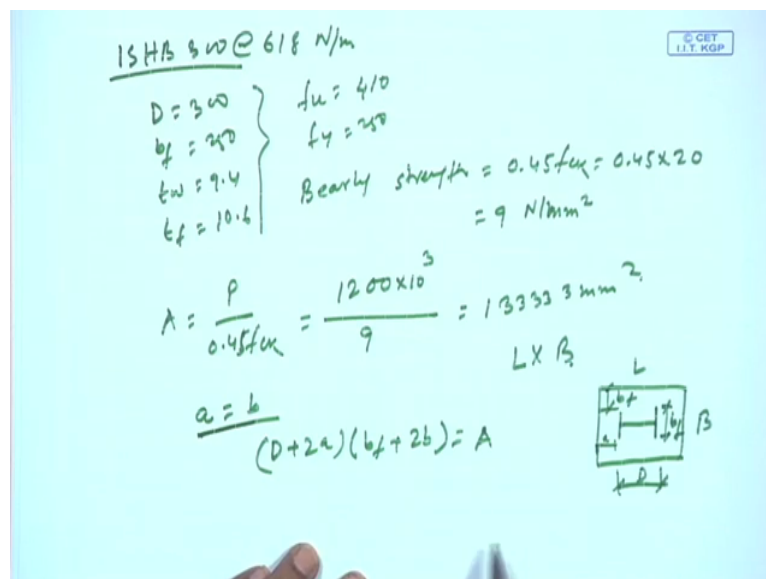 ISHB 300 @ 618 N/m
© CET
I.I.T. KGP
D = 300
bf = 250
tw = 9.4
tf = 10.6
fu = 410
fy = 250
Bearing strength = 0.45fck = 0.45×20
= 9 N/mm²
A = P / 0.45fck = 1200×10³ / 9 = 133333 mm²
L × B
a = b
(D+2a)(bf+2b) = A
L
bf
a
bf
B
D